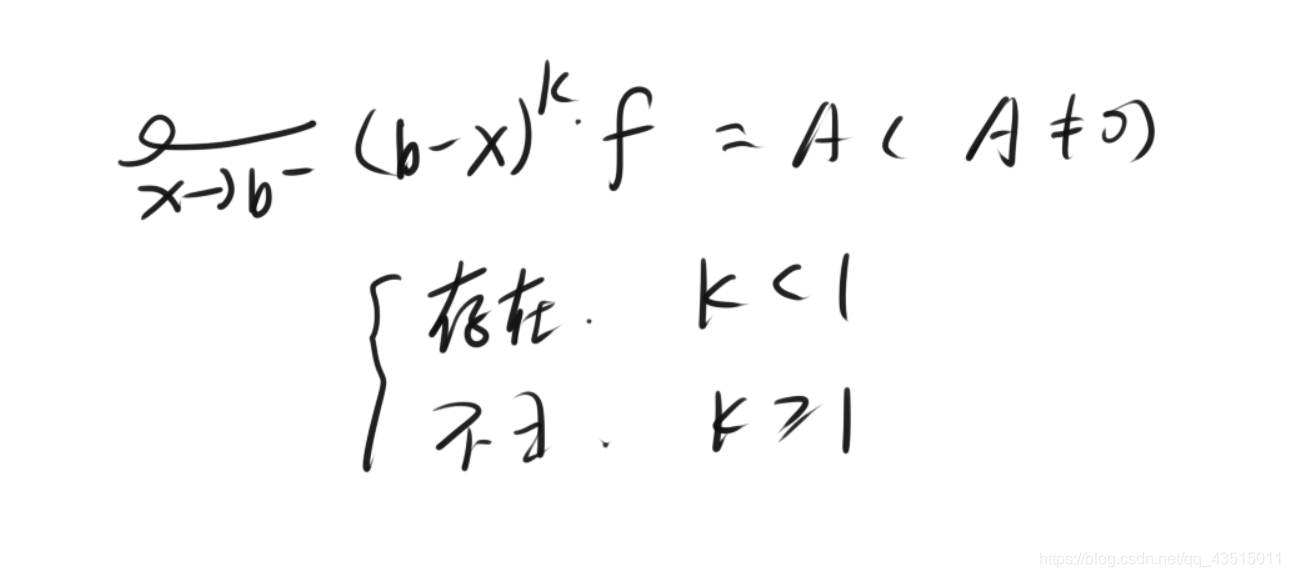 lim (b-x)^k · f = A ( A ≠ 0)
x→b⁻
{ 存在. k < 1
不∃. k ≥ 1
https://blog.csdn.net/qq_43515011